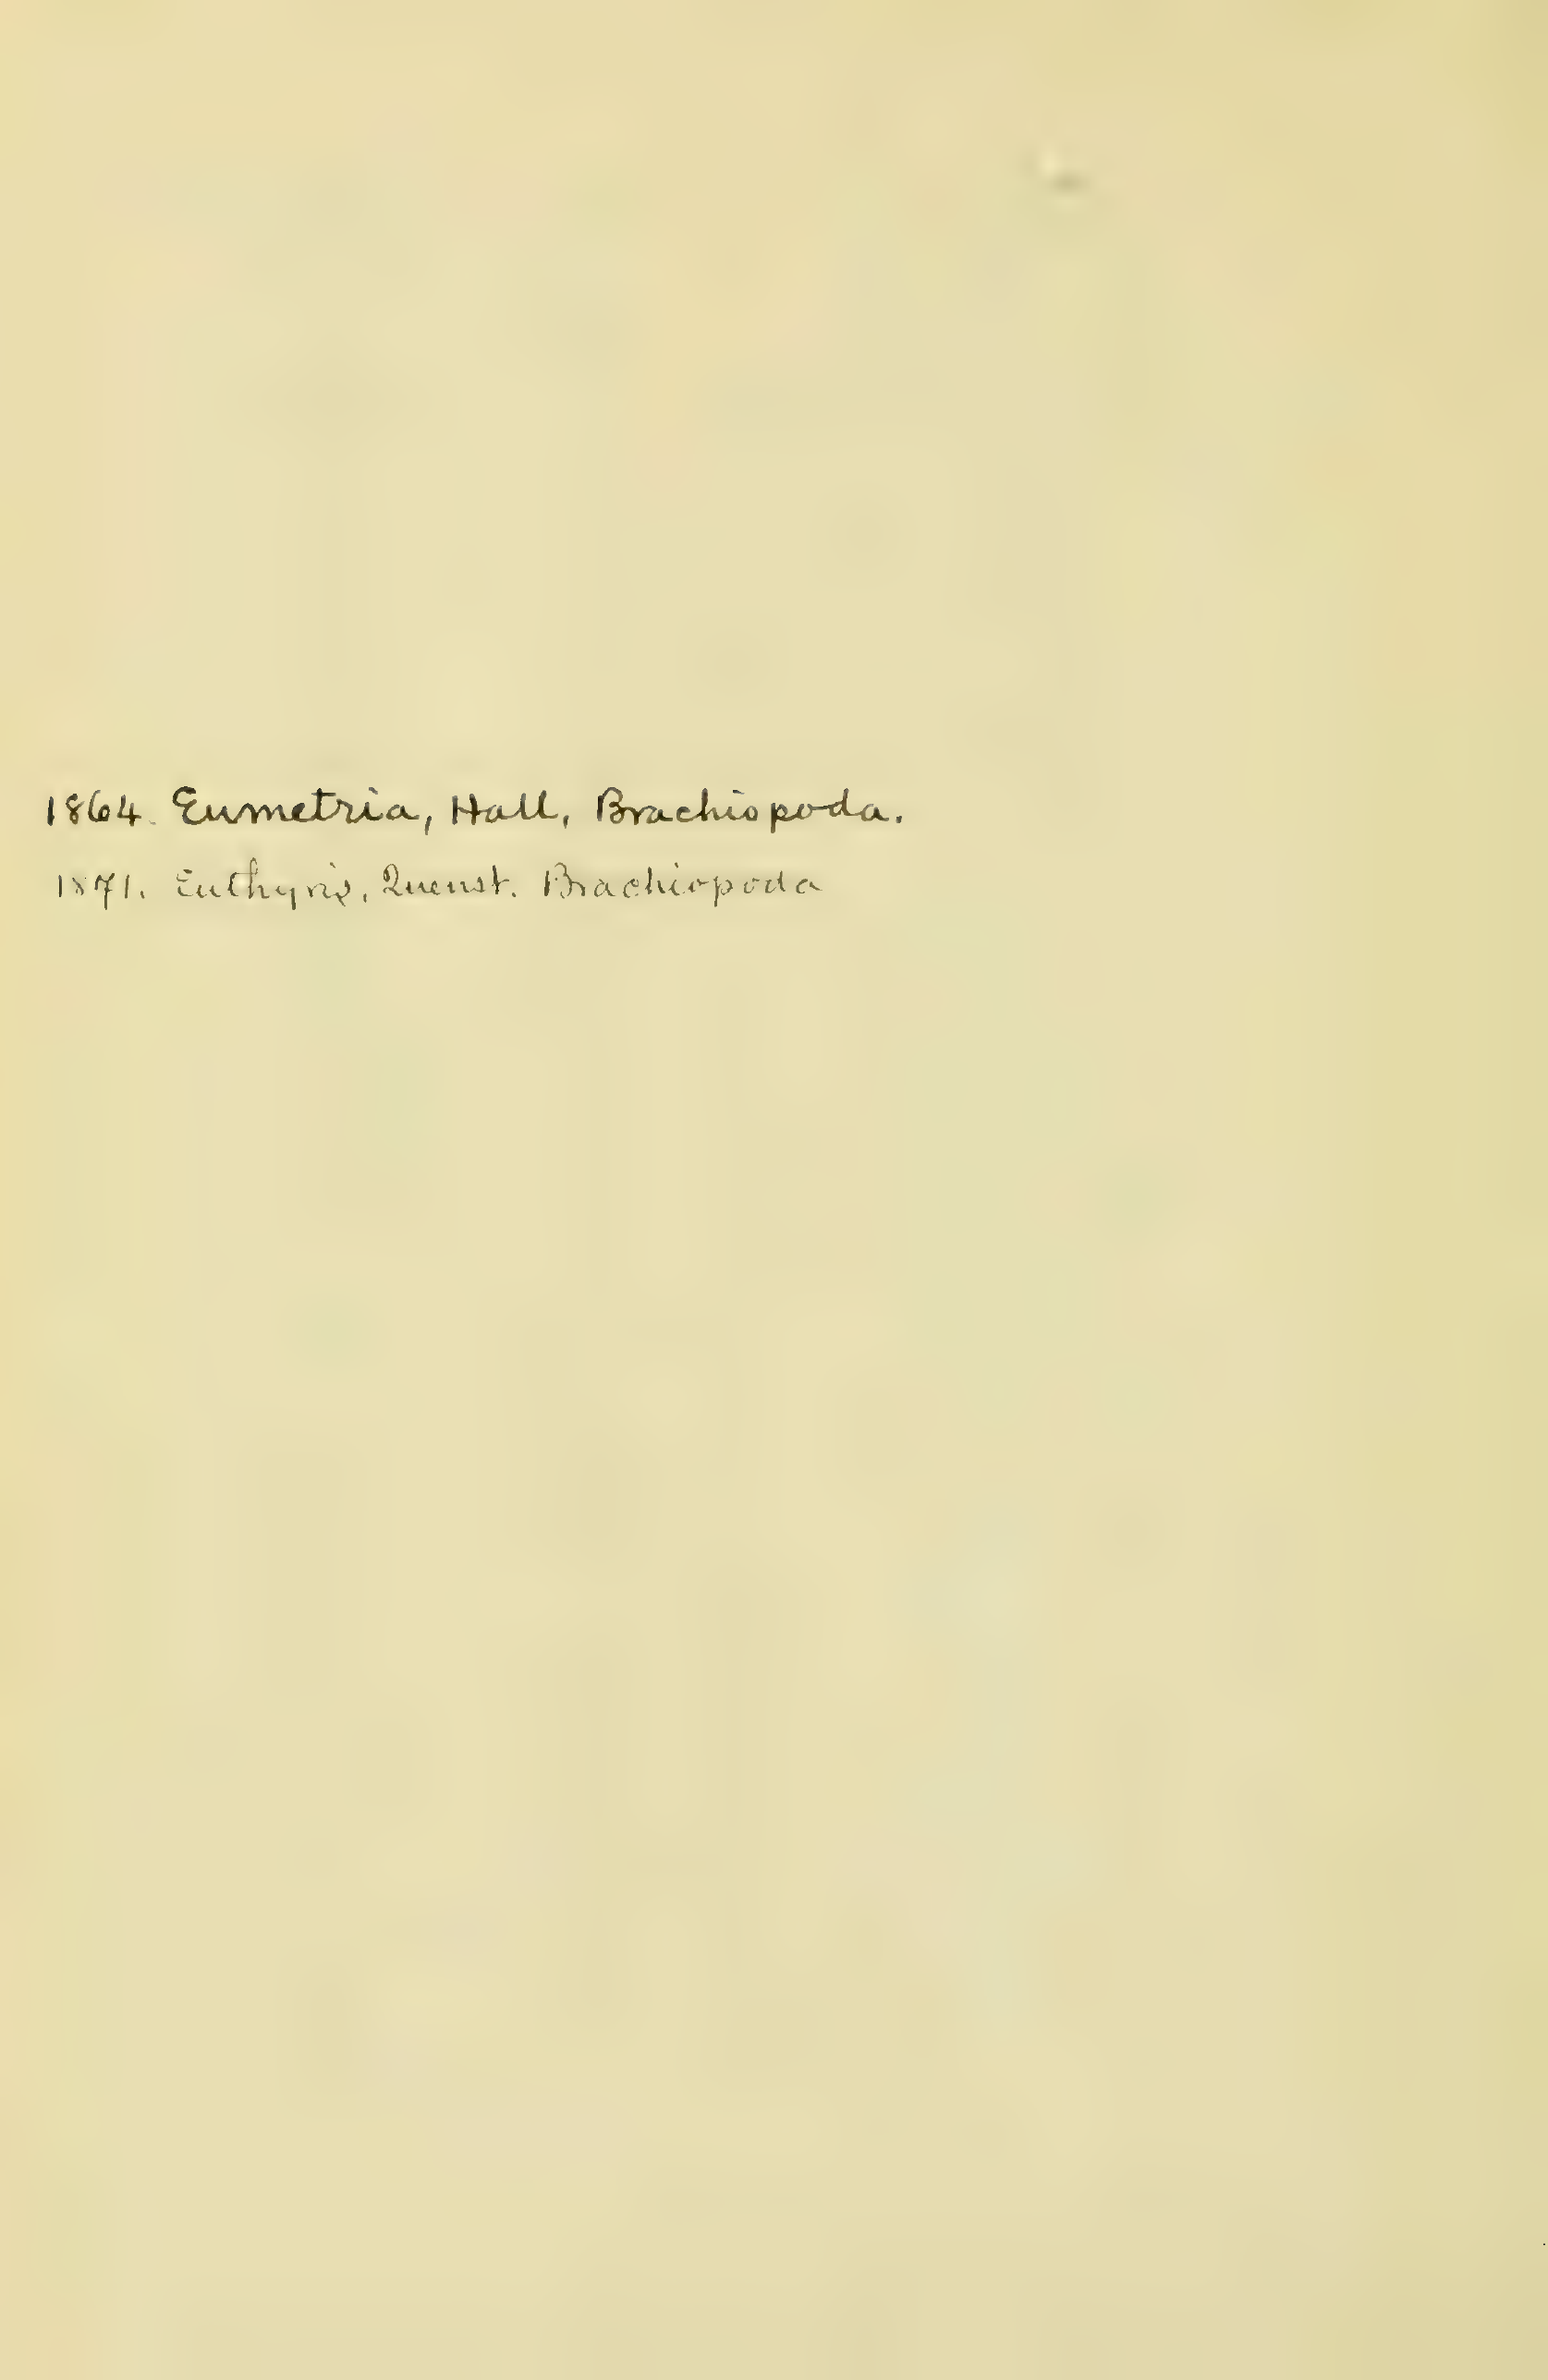 1864. Eumetria, Hall, Brachiopoda.
1871. Euthyris, Quenst. Brachiopoda